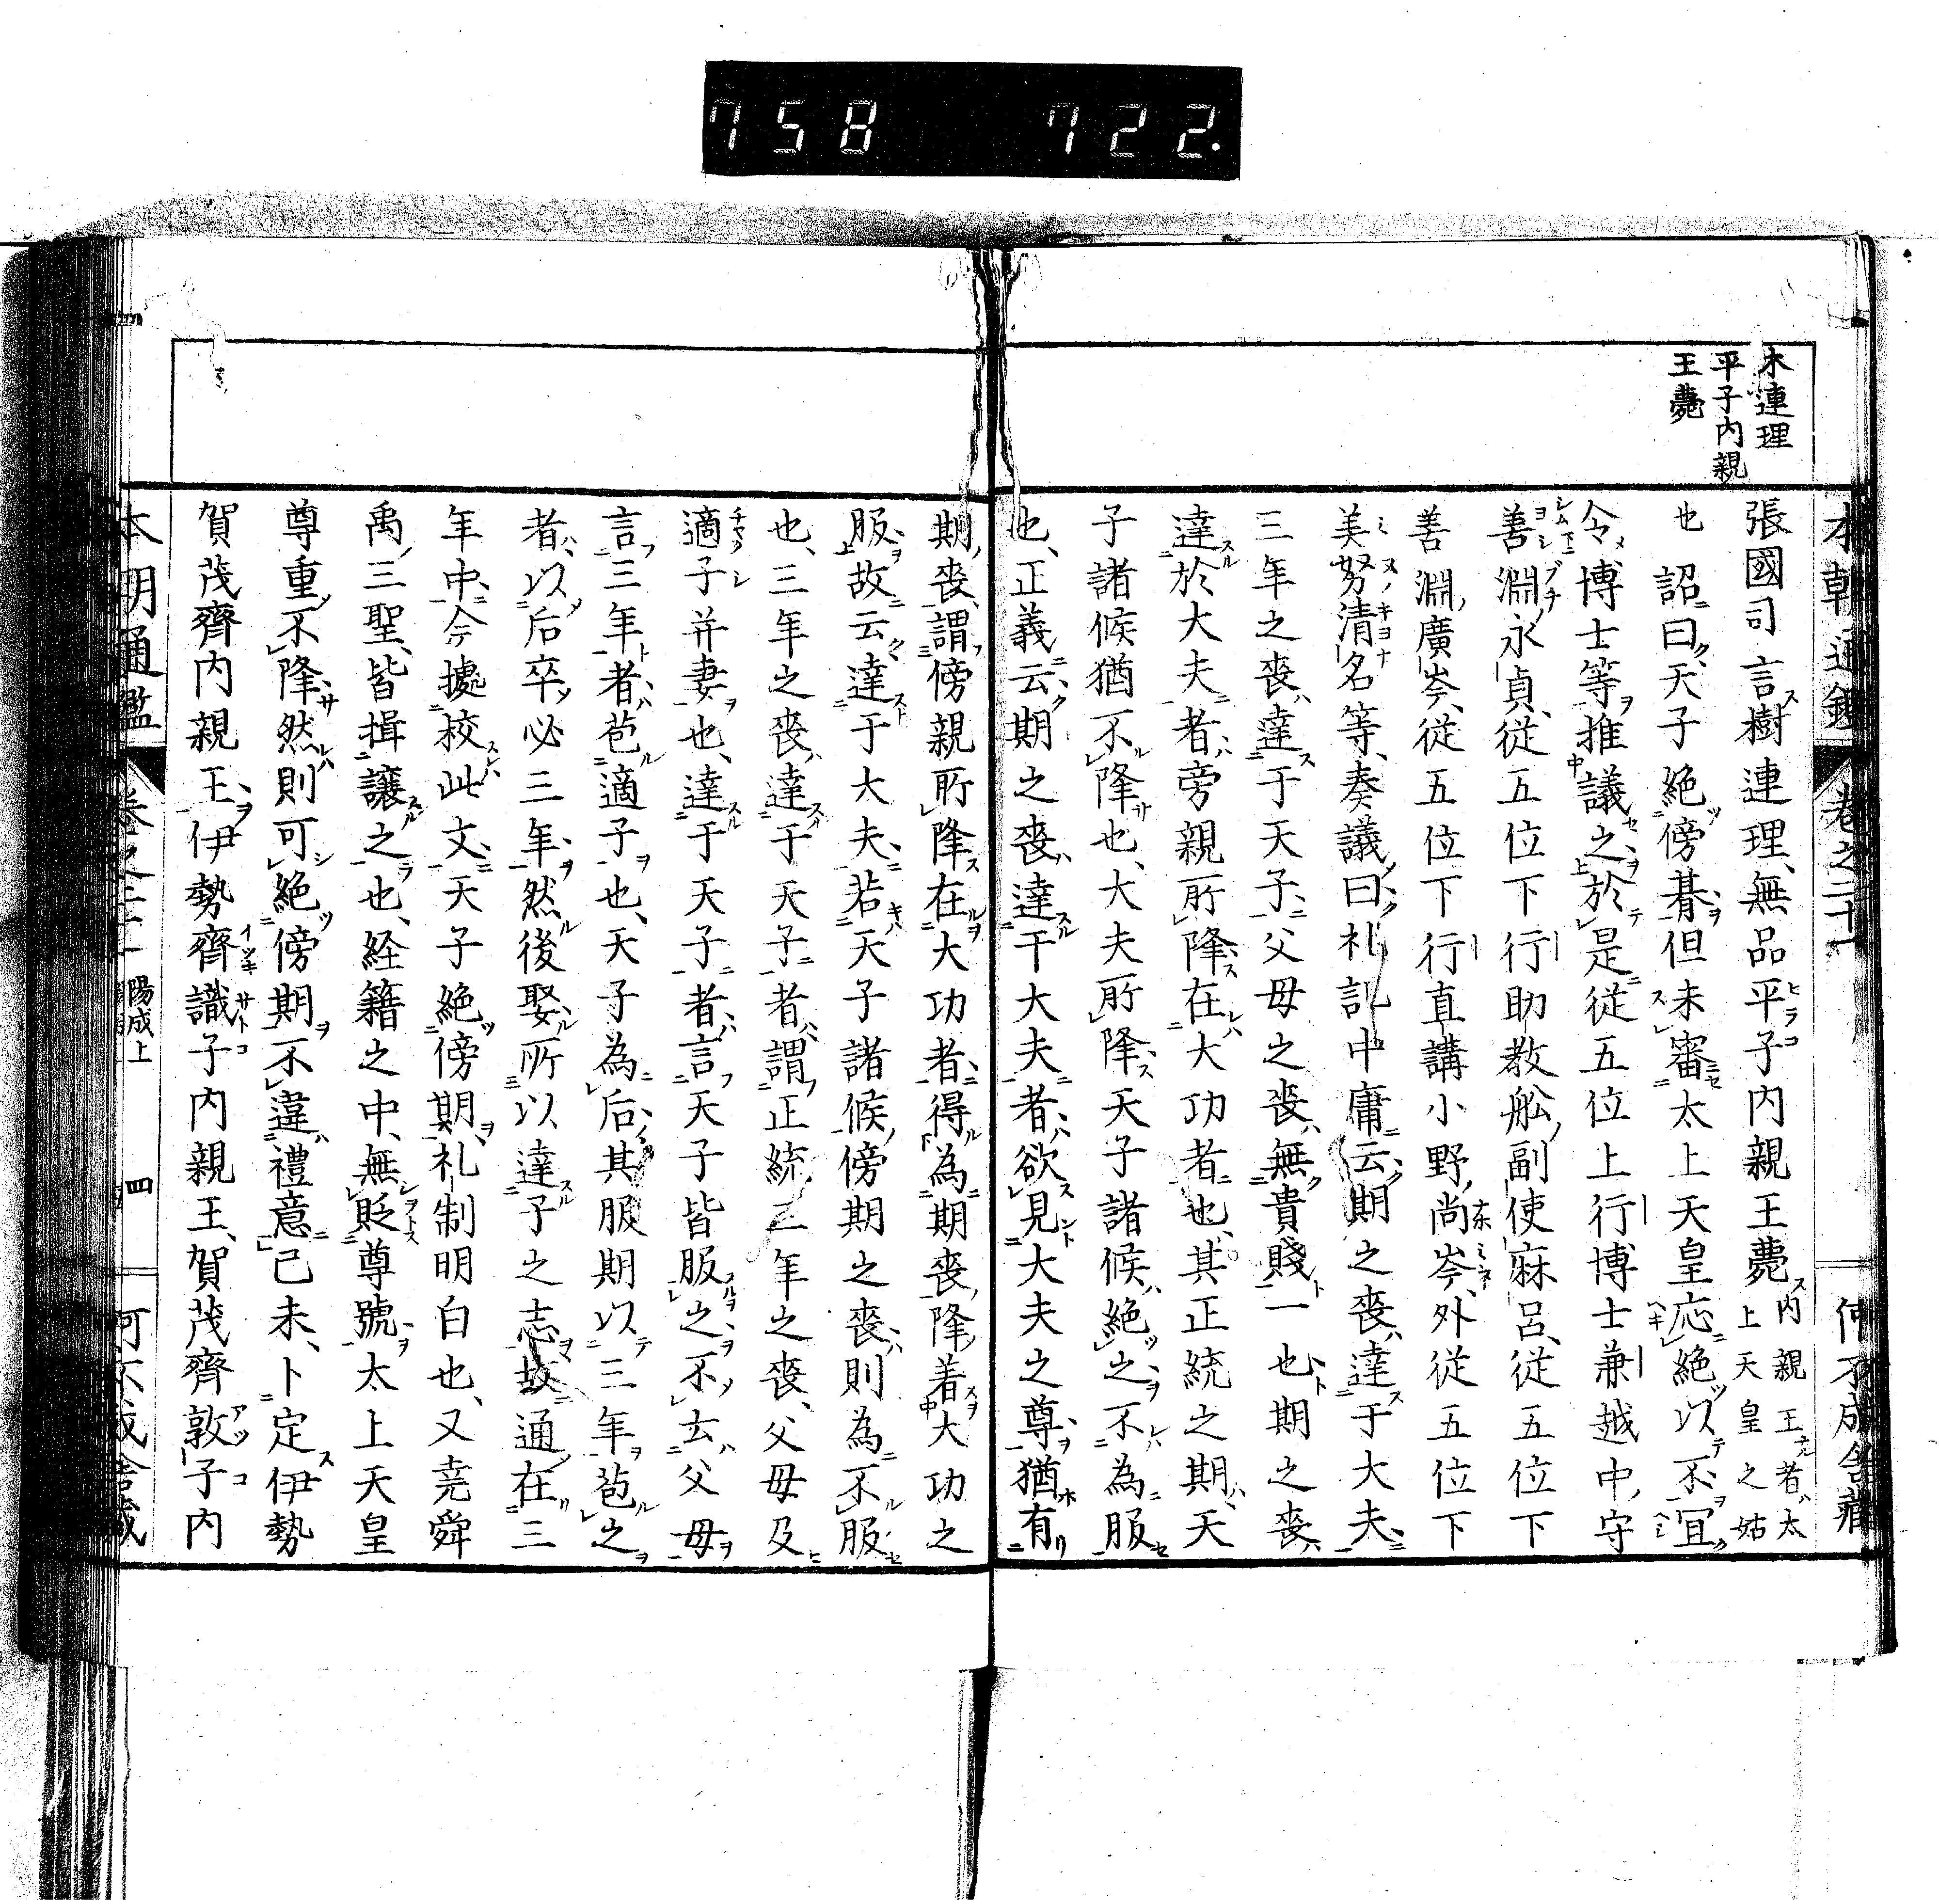 758 722.
木連理
平子内親
王薨
本朝通鑑 卷之三十一 仲不成舍藏
張國司言樹連理、無品平子内親王薨内親王者太上天皇之姑
也詔曰天子絶傍朞但未審太上天皇応絶以不宜
令博士等推議之於是従五位上行博士兼越中守
善淵永貞、従五位下行助教舩副使麻呂、従五位下
善淵廣岑、従五位下行直講小野尚岑、外従五位下
美努清名等、奏議曰礼記中庸云期之喪達于大夫
三年之喪達于天子父母之喪無貴賤一也期之喪
達於大夫者旁親所降在大功者也其正統之期天
子諸候猶不降也、大夫所降天子諸候絶之不為服
也、正義云期之喪達于大夫者欲見大夫之尊猶有
期喪謂傍親所降在大功者得為期喪降着大功之
服故云達于大夫若天子諸候傍期之喪則為不服
也、三年之喪達于天子者謂正統三年之喪、父母及
適子并妻也、達于天子者言天子皆服之不去父母
言三年者苞適子也、天子為后其服期以三年苞之
者以后卒必三年然後娶所以達子之志故通在三
年中今據校此文天子絶傍期、礼制明白也、又尭舜
禹三聖、皆揖讓之也、経籍之中、無貶尊號太上天皇
尊重不降然則可絶傍期不違禮意己未、卜定伊勢
賀茂齊内親王伊勢齊識子内親王、賀茂齊敦子内
陽成上 四